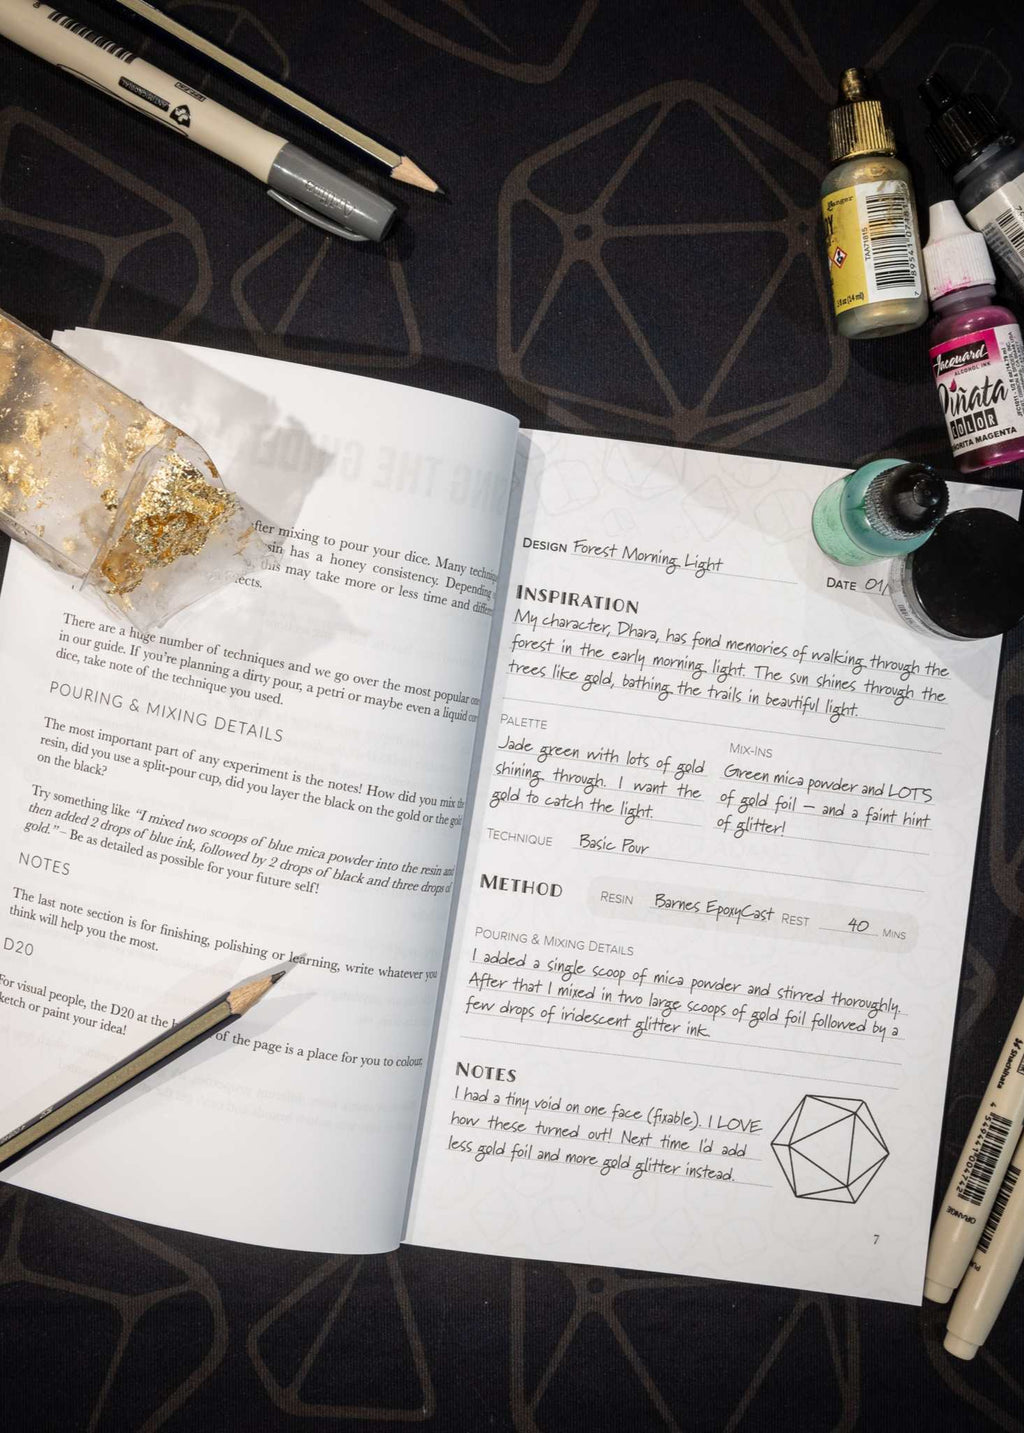 after mixing to pour your dice. Many
has a honey consistency. Depending
this may take more or less time and
There are a huge number of techniques and we go over the most popular
in our guide. If you're planning a dirty pour, a petri or maybe even a liquid
dice, take note of the technique you used.
POURING & MIXING DETAILS
The most important part of any experiment is the notes! How did you mix the
resin, did you use a split-pour cup, did you layer the black on the gold or the gold
on the black?
Try something like "I mixed two scoops of blue mica powder into the resin and
then added 2 drops of blue ink, followed by 2 drops of black and three drops of
gold." – Be as detailed as possible for your future self!
NOTES
The last note section is for finishing, polishing or learning, write whatever you
think will help you the most.
D20
For visual people, the D20 at the of the page is a place for you to colour,
sketch or paint your idea!
DESIGN Forest Morning Light
DATE 01/
INSPIRATION
My character, Dhara, has fond memories of walking through the
forest in the early morning light. The sun shines through the
trees like gold, bathing the trails in beautiful light.
PALETTE
Jade green with lots of gold
shining through. I want the
gold to catch the light.
MIX-INS
Green mica powder and LOTS
of gold foil – and a faint hint
of glitter!
TECHNIQUE Basic Pour
METHOD
RESIN Barnes EpoxyCast REST 40 MINS
POURING & MIXING DETAILS
I added a single scoop of mica powder and stirred thoroughly.
After that I mixed in two large scoops of gold foil followed by a
few drops of iridescent glitter ink.
NOTES
I had a tiny void on one face (fixable). I LOVE
how these turned out! Next time I'd add
less gold foil and more gold glitter instead.
7
Ranger
TAA71815
Jacquard
ALCOHOL INK
Piñata
COLOR
SEÑORITA MAGENTA
Shachihata
4 549441 004742
ORANGE